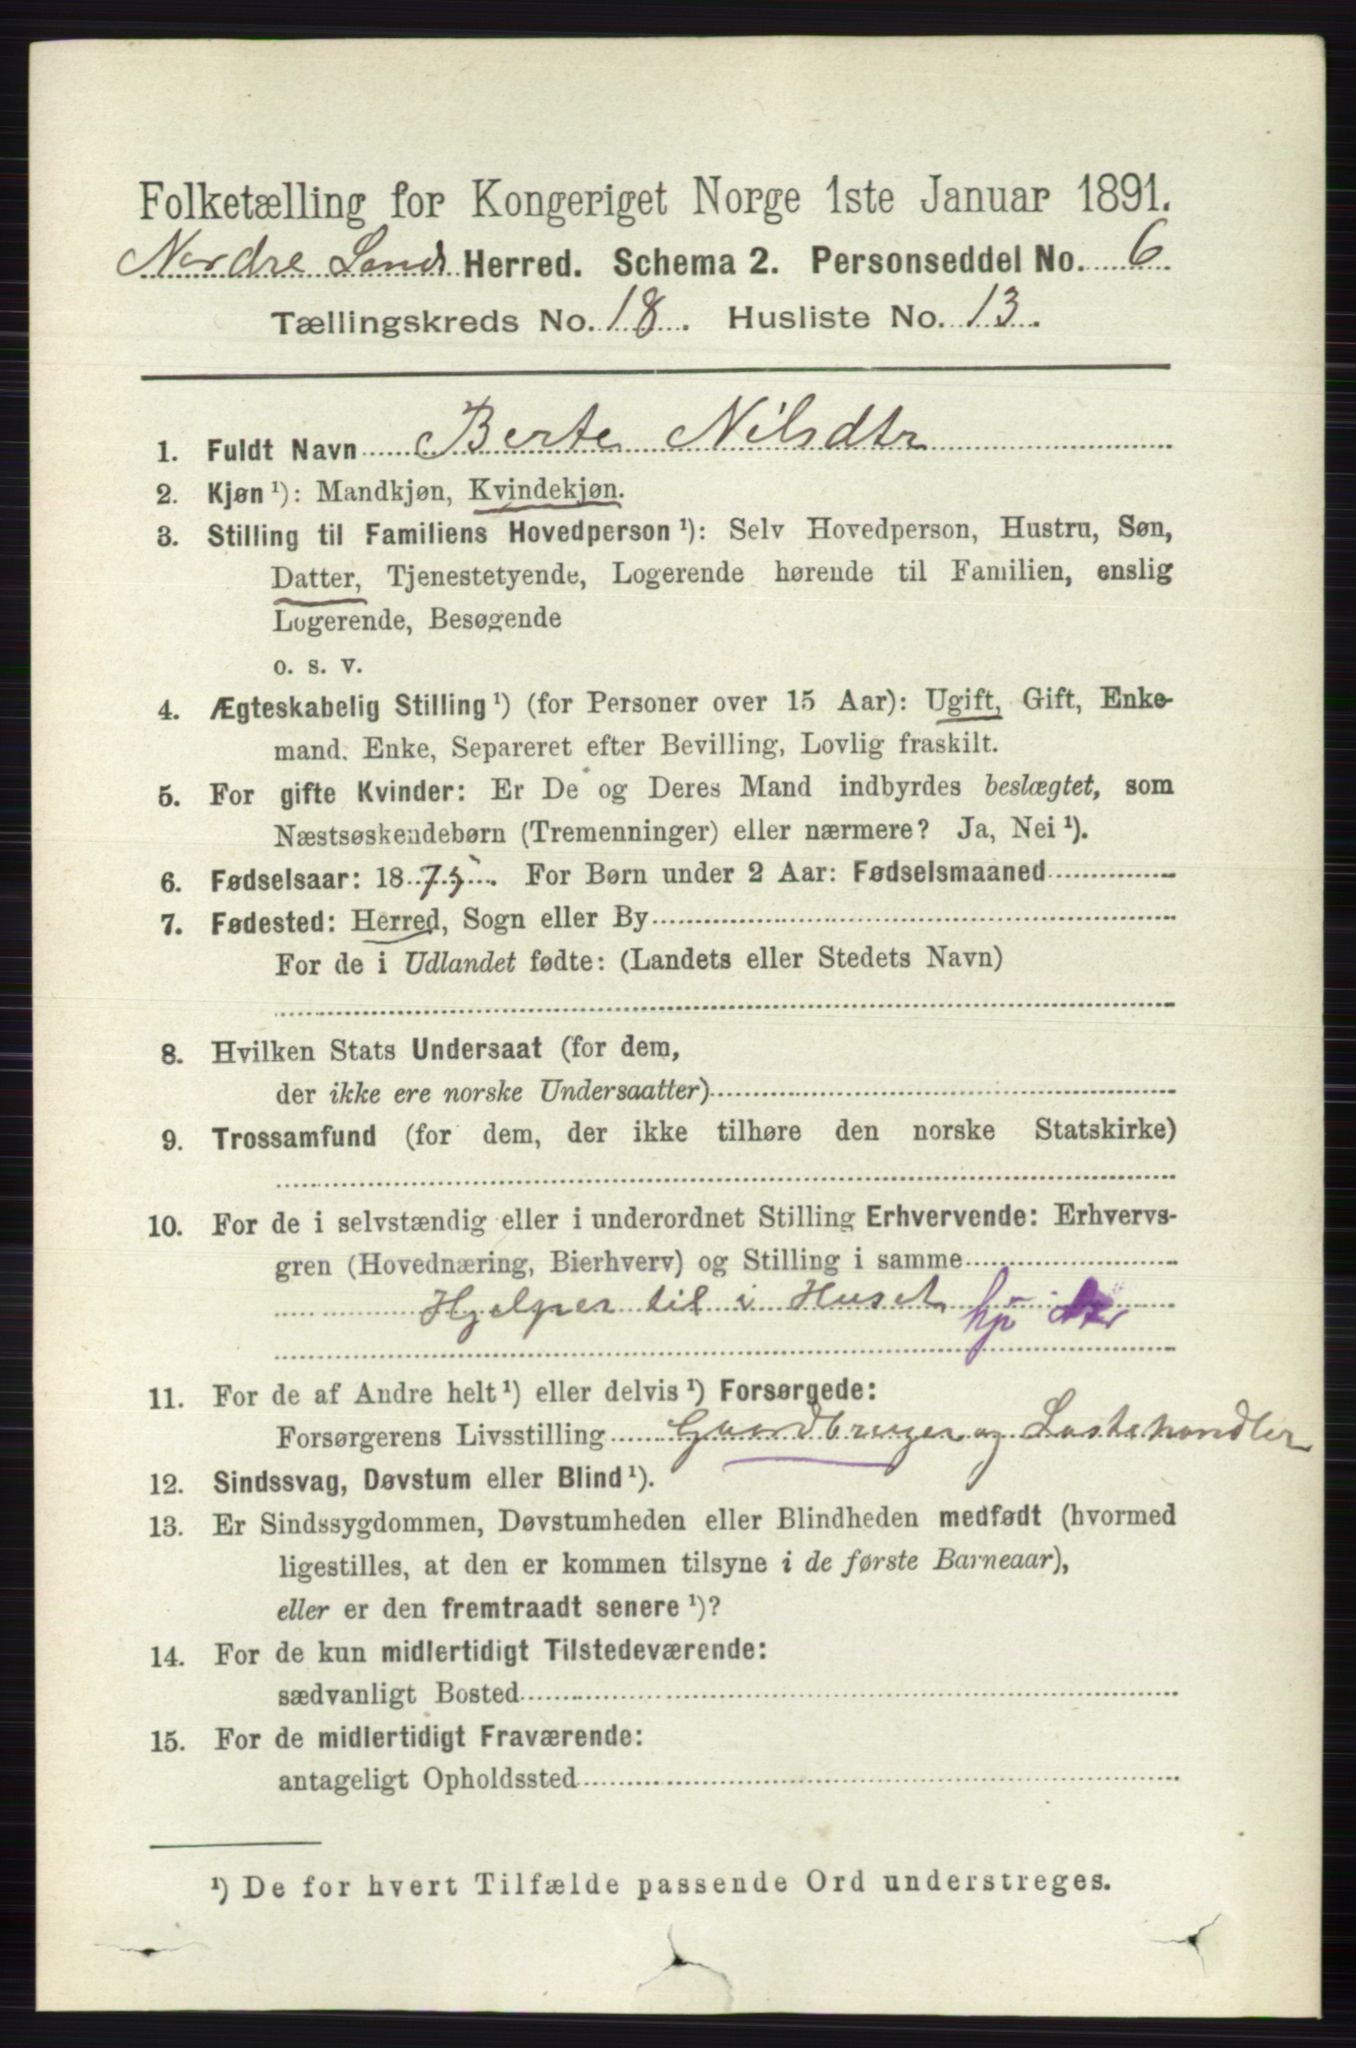 Folketælling for Kongeriget Norge 1ste Januar 1891.
Nordre Land Herred. Schema 2. Personseddel No. 6
Tællingskreds No. 18. Husliste No. 13.
1. Fuldt Navn Berte Nilsdtr
2. Kjøn ¹): Mandkjøn, Kvindekjøn.
3. Stilling til Familiens Hovedperson ¹): Selv Hovedperson, Hustru, Søn,
Datter, Tjenestetyende, Logerende hørende til Familien, enslig
Logerende, Besøgende
o. s. v.
4. Ægteskabelig Stilling ¹) (for Personer over 15 Aar): Ugift, Gift, Enke-
mand. Enke, Separeret efter Bevilling, Lovlig fraskilt.
5. For gifte Kvinder: Er De og Deres Mand indbyrdes beslægtet, som
Næstsøskendebørn (Tremenninger) eller nærmere? Ja, Nei ¹).
6. Fødselsaar: 1875. For Børn under 2 Aar: Fødselsmaaned
7. Fødested: Herred, Sogn eller By
For de i Udlandet fødte: (Landets eller Stedets Navn)
8. Hvilken Stats Undersaat (for dem,
der ikke ere norske Undersaatter)
9. Trossamfund (for dem, der ikke tilhøre den norske Statskirke)
10. For de i selvstændig eller i underordnet Stilling Erhvervende: Erhvervs-
gren (Hovednæring, Bierhverv) og Stilling i samme
Hjelper til i Huset hj
11. For de af Andre helt ¹) eller delvis ¹) Forsørgede:
Forsørgerens Livsstilling Gaardbruger og Lastehandler
12. Sindssvag, Døvstum eller Blind ¹).
13. Er Sindssygdommen, Døvstumheden eller Blindheden medfødt (hvormed
ligestilles, at den er kommen tilsyne i de første Barneaar),
eller er den fremtraadt senere ¹)?
14. For de kun midlertidigt Tilstedeværende:
sædvanligt Bosted
15. For de midlertidigt Fraværende:
antageligt Opholdssted
¹) De for hvert Tilfælde passende Ord understreges.